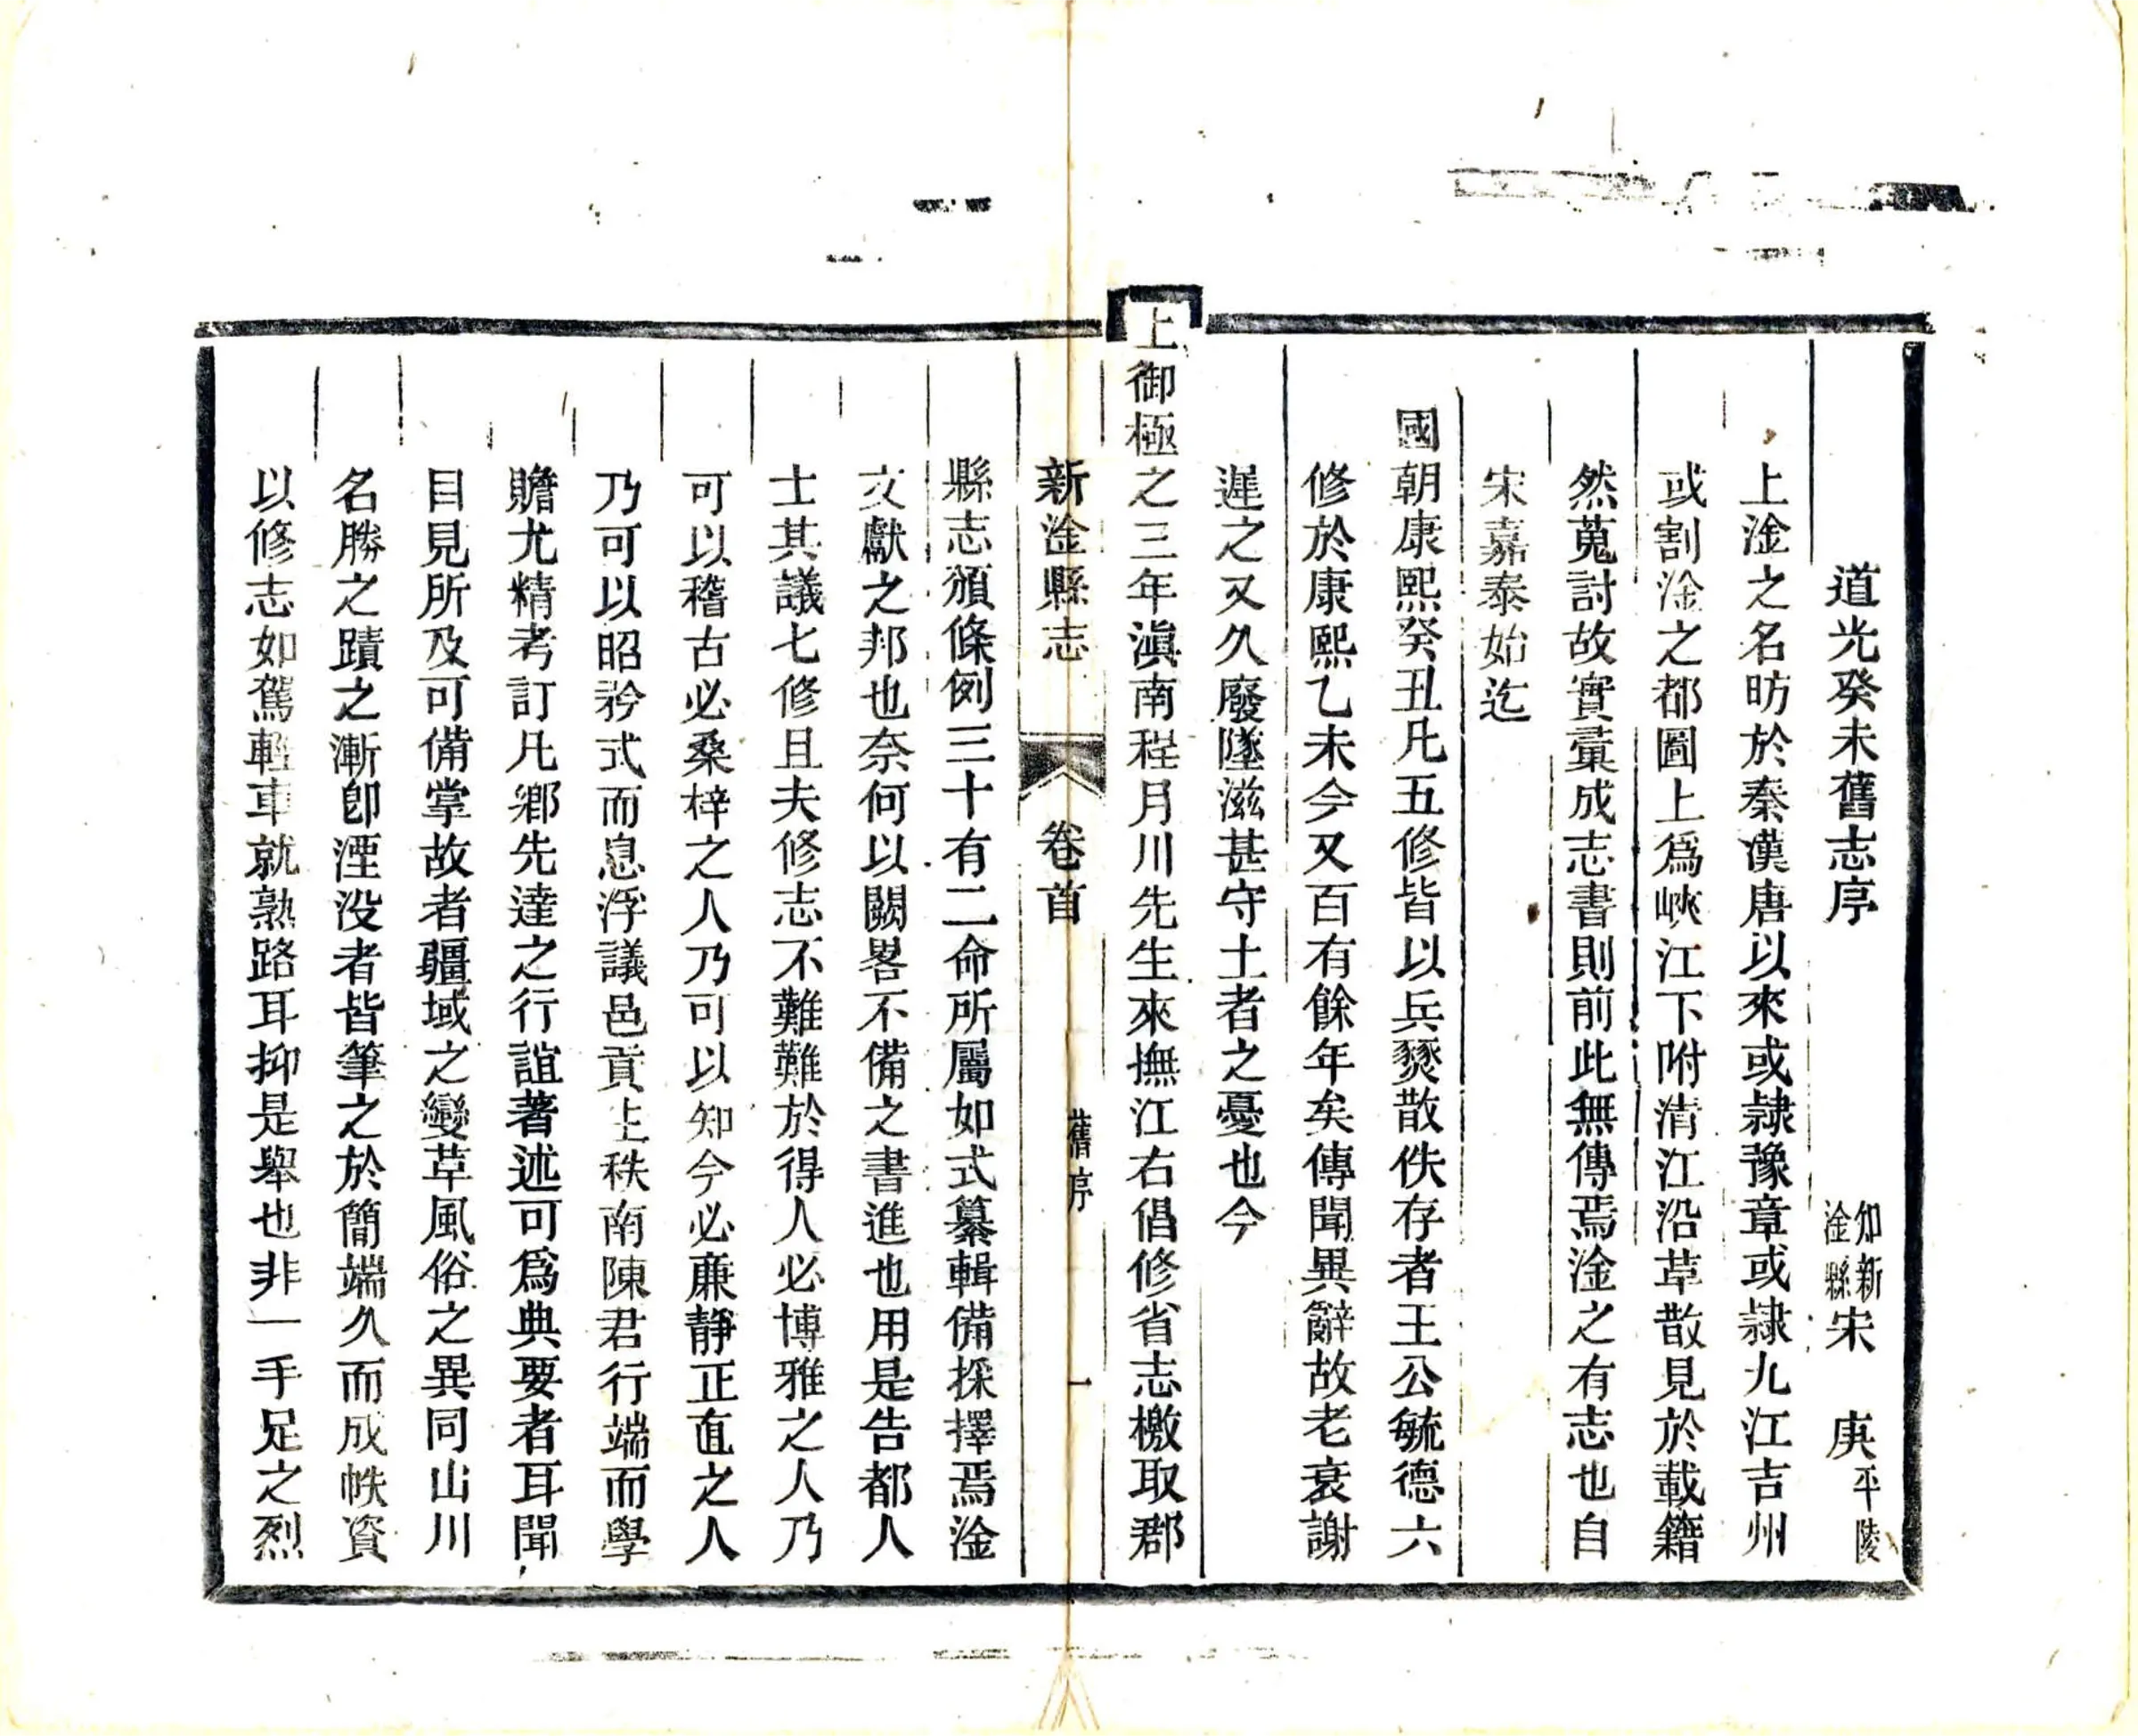 道光癸未舊志序 知新淦縣宋 庚平陵
上淦之名昉於秦漢唐以來或隷豫章或隷九江吉州
或割淦之都圖上爲峽江下附清江沿革散見於載籍
然蒐討故實彚成志書則前此無傳焉淦之有志也自
宋嘉泰始迄
國朝康熙癸丑凡五修皆以兵燹散佚存者王公毓德六
修於康熙乙未今又百有餘年矣傳聞異辭故老衰謝
遲之又久廢墜滋甚守土者之憂也今
上御極之三年滇南程月川先生來撫江右倡修省志檄取郡
新淦縣志 卷首 舊序 一
縣志頒條例三十有二命所屬如式纂輯備採擇焉淦
文獻之邦也奈何以闕畧不備之書進也用是告都人
士其議七修且夫修志不難難於得人必博雅之人乃
可以稽古必桑梓之人乃可以知今必廉靜正直之人
乃可以昭矜式而息浮議邑貢生秩南陳君行端而學
贍尤精考訂凡鄉先達之行誼著述可爲典要者耳聞
目見所及可備掌故者疆域之變革風俗之異同山川
名勝之蹟之漸卽湮没者皆筆之於簡端久而成帙資
以修志如駕輕車就熟路耳抑是舉也非一手足之烈